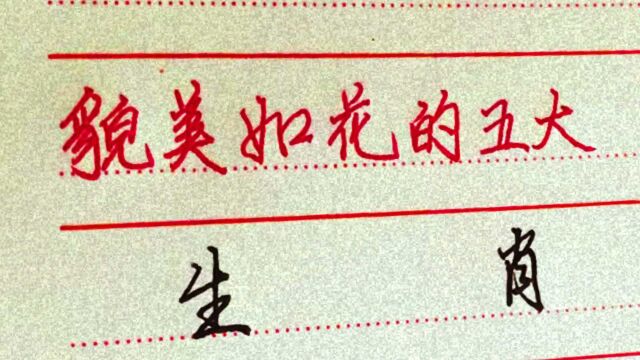 貌美如花的五大
生肖